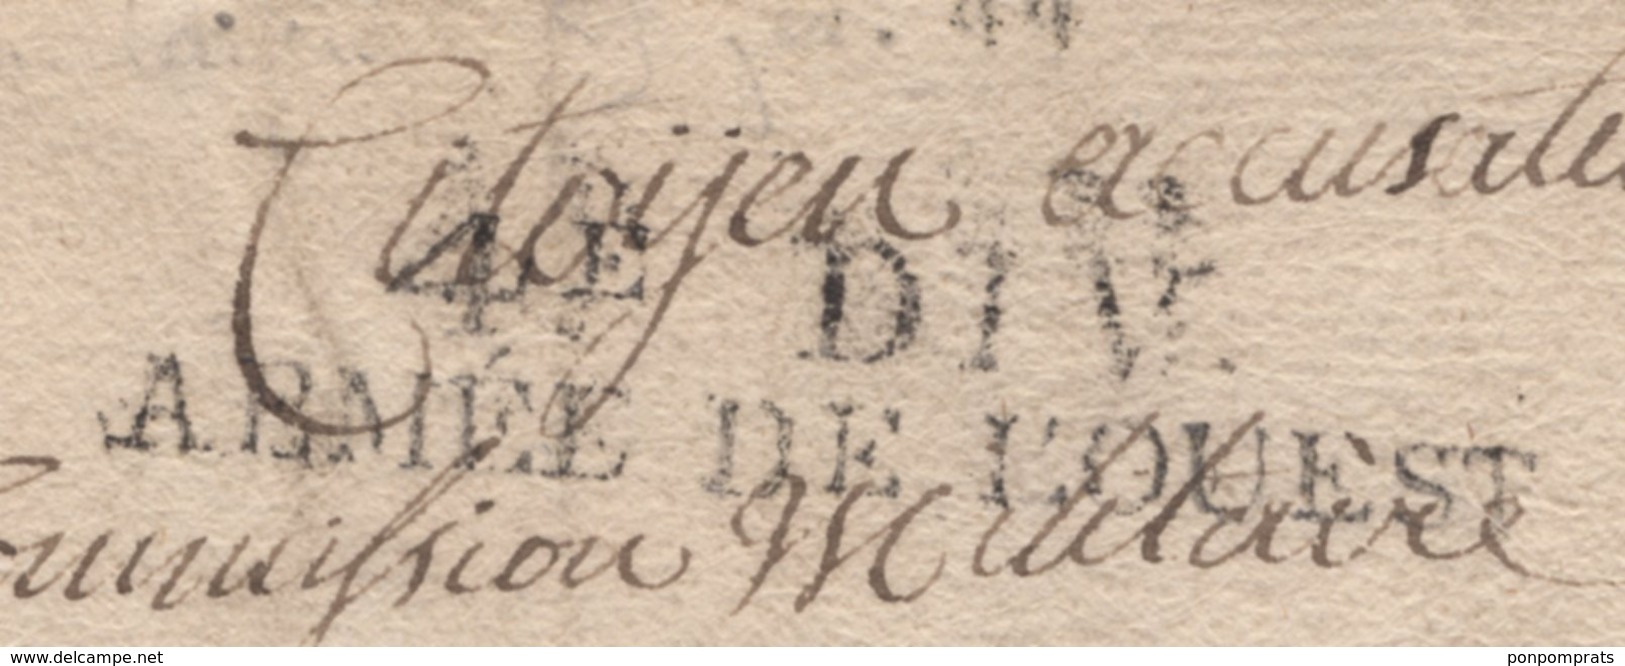 44
Citoyen accusateu
4E DIV.
ARMÉE DE L'OUEST
ommission Militaire
www.delcampe.net
ponpomprats